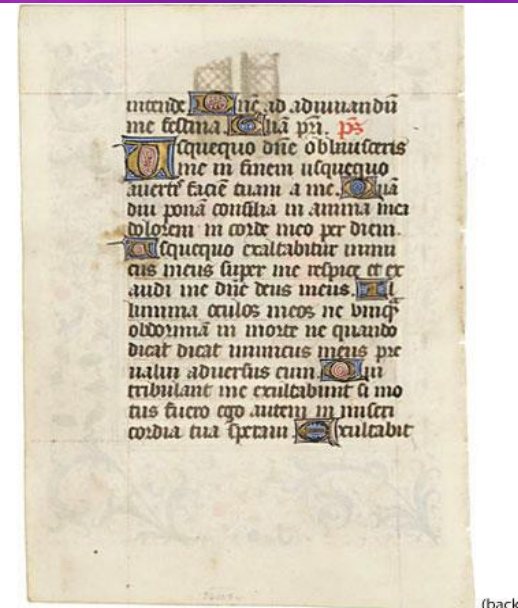 intende Dne ad adiuuandu
me festina. Glia pri. ps
Usquequo dne obliuisceris
me in finem usquequo
auertis facie tuam a me. Qua
diu pona consilia in anima mea
dolorem in corde meo per diem.
Usquequo exaltabitur inimi
cus meus super me respice et ex
audi me dne deus meus. Il
lumina oculos meos ne unq
obdormia in morte ne quando
dicat dicat inimicus meus pre
ualui aduersus eum. Qui
tribulant me exultabunt si mo
tus fuero ego autem in miseri
cordia tua speraui. Exultabit
(back